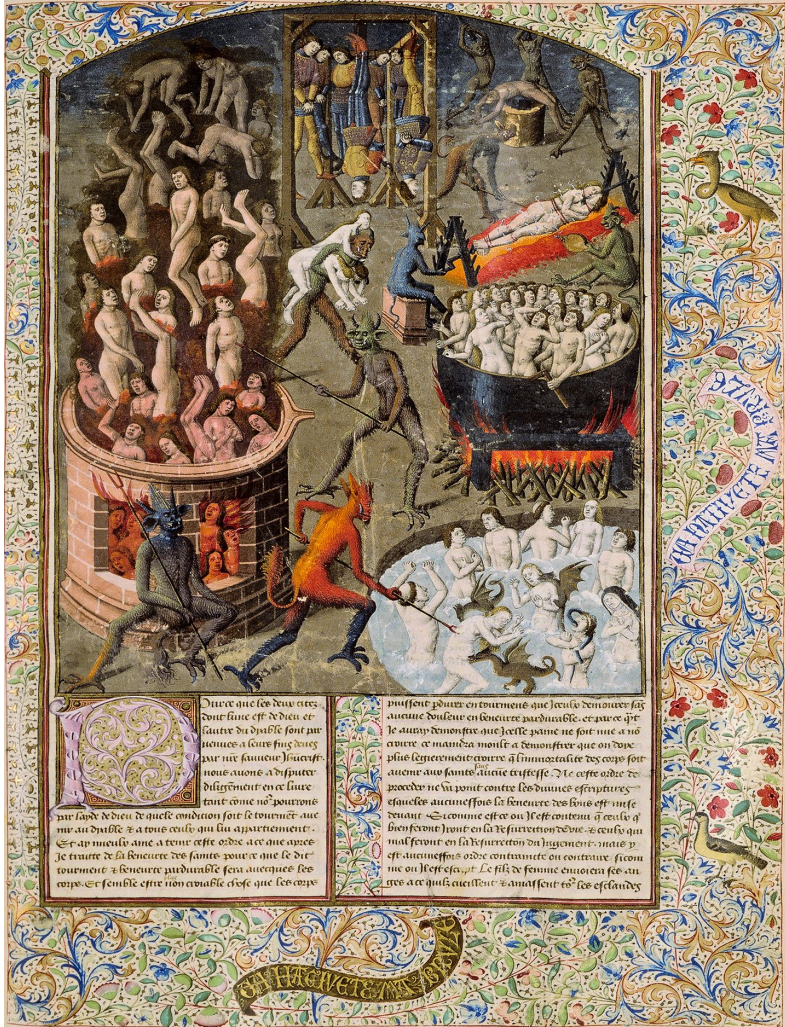 Pource que les deux cites
dont lune est de dieu et
lautre du dyable sont par
uenues a leurs fins deues
par nre sauueur Jhucrist.
nous auons a disputer
diligemment en ce liure
tant come no⁹ pourrons
par layde de dieu de quele condicion soit le tourmēt aue
nir au dyable & a tous ceulx qui lui appartiennent.
Et ay mieulx ame a tenir ceste ordre a ce que apres
Je traitte de la beneurte des saints pour ce que le dit
tourment & beneurte pardurable sera auecques les
corps. Et semble estre non croiable chose que les corps
puissent durer en tourmens que Jceulx demourer sās
aucune douleur en beneurte pardurable. et par ce q̄t
Je auray demonstre que Jcelle paine ne soit mie a nō
croire ce maidra moult a demonstrer que on doye
plus legierement croire q̄ limmortalite des corps soit
auenir aux saints sans aucune tristesse. Ne ceste ordre de
proceder ne va point contre les diuines escriptures
esqueles aucuneffois la beneurte des bons est mise
deuant. Sicomme est ce ou Jl est contenu q̄ ceulx q̄
bien feront Jront en la Resurrection de vie. & ceulx qui
mal feront en la Resurrection du Jugement. mais y
est aucuneffois ordre contrainte ou contraire. sicom
me ou Jl est escript. Le filz de femme enuoiera ses an
gres a ce quilz accueillent & amassent to⁹ les esclandes
HATIVETE
HATIVETE MA